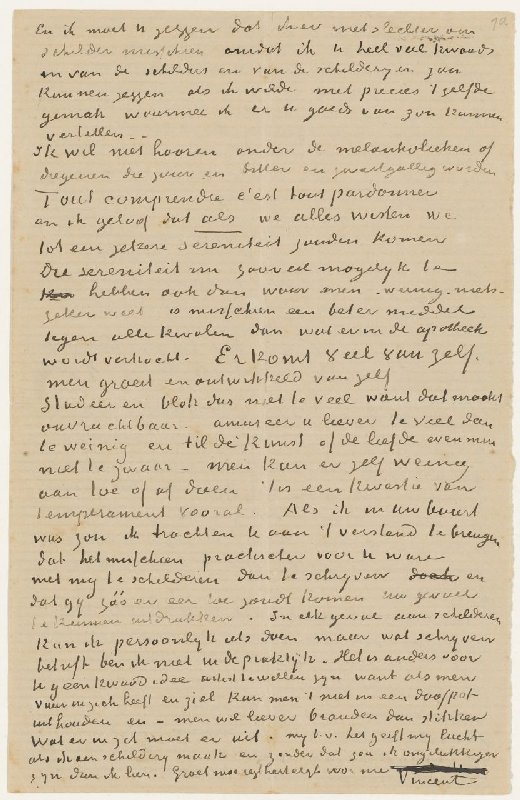 1a
En ik moet U zeggen dat over niet slechter van
schilder misschien omdat ik U heel veel kwaads
en van de schilders en van de schilderijen zou
kunnen zeggen als ik wilde met precies 't zelfde
gemak waarmee ik er U goeds van zou kunnen
vertellen --
Ik wil niet hooren onder de melankolieken of
diegenen die zuur en bitter en zwartgallig worden
Tout comprendre c'est tout pardonner
en ik geloof dat als we alles wisten we
tot een zekere sereniteit zouden komen
Die sereniteit nu zooveel mogelijk te
hebben ook dan waar men weinig niets
zeker weet is misschien een beter middel
tegen alle kwalen dan wat er in de apotheek
wordt verkocht - Er komt veel van zelf.
men groeit en ontwikkeld van zelf
Studeer en blok dus niet te veel want dat maakt
onvruchtbaar. amuseer U liever te veel dan
te weinig en til de kunst of de liefde evenmin
niet te zwaar - men kan er zelf weinig
aan toe of af doen 't is een kwestie van
temperament vooral. Als ik in uw buurt
was zou ik trachten U aan 't verstand te brengen
dat het misschien practischer voor U ware
met mij te schilderen dan te schrijven en
dat gij zóó er eer toe zoudt komen uw gevoel
te kunnen uitdrukken. In elk geval aan schilderen
kan ik persoonlijk iets doen maar wat schrijven
betreft ben ik niet in de praktijk - Het is anders voor
U geen kwaad idee artist te willen zijn want als men
vuur in zich heeft en ziel kan men 't niet in een doofpot
inhouden en - men wil liever branden dan stikken
Wat er in zit moet er uit. mij b.v. het geeft mij lucht
als ik een schilderij maak en zonder dat zou ik ongelukkiger
zijn dan ik ben. Groet moe regt hartelijk voor me
Vincent